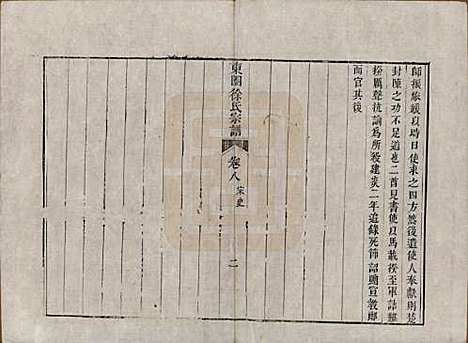 師振旅緩以時日使東之四方然後遣使人奉獻則楚
封陲之功不足道也二酋見書使以馬載揆至軍詰難
揆厲聲抗論為所殺建炎二年追錄死節詔贈宣教郎
而官其後
東園徐氏宗譜
卷八 宋史
二